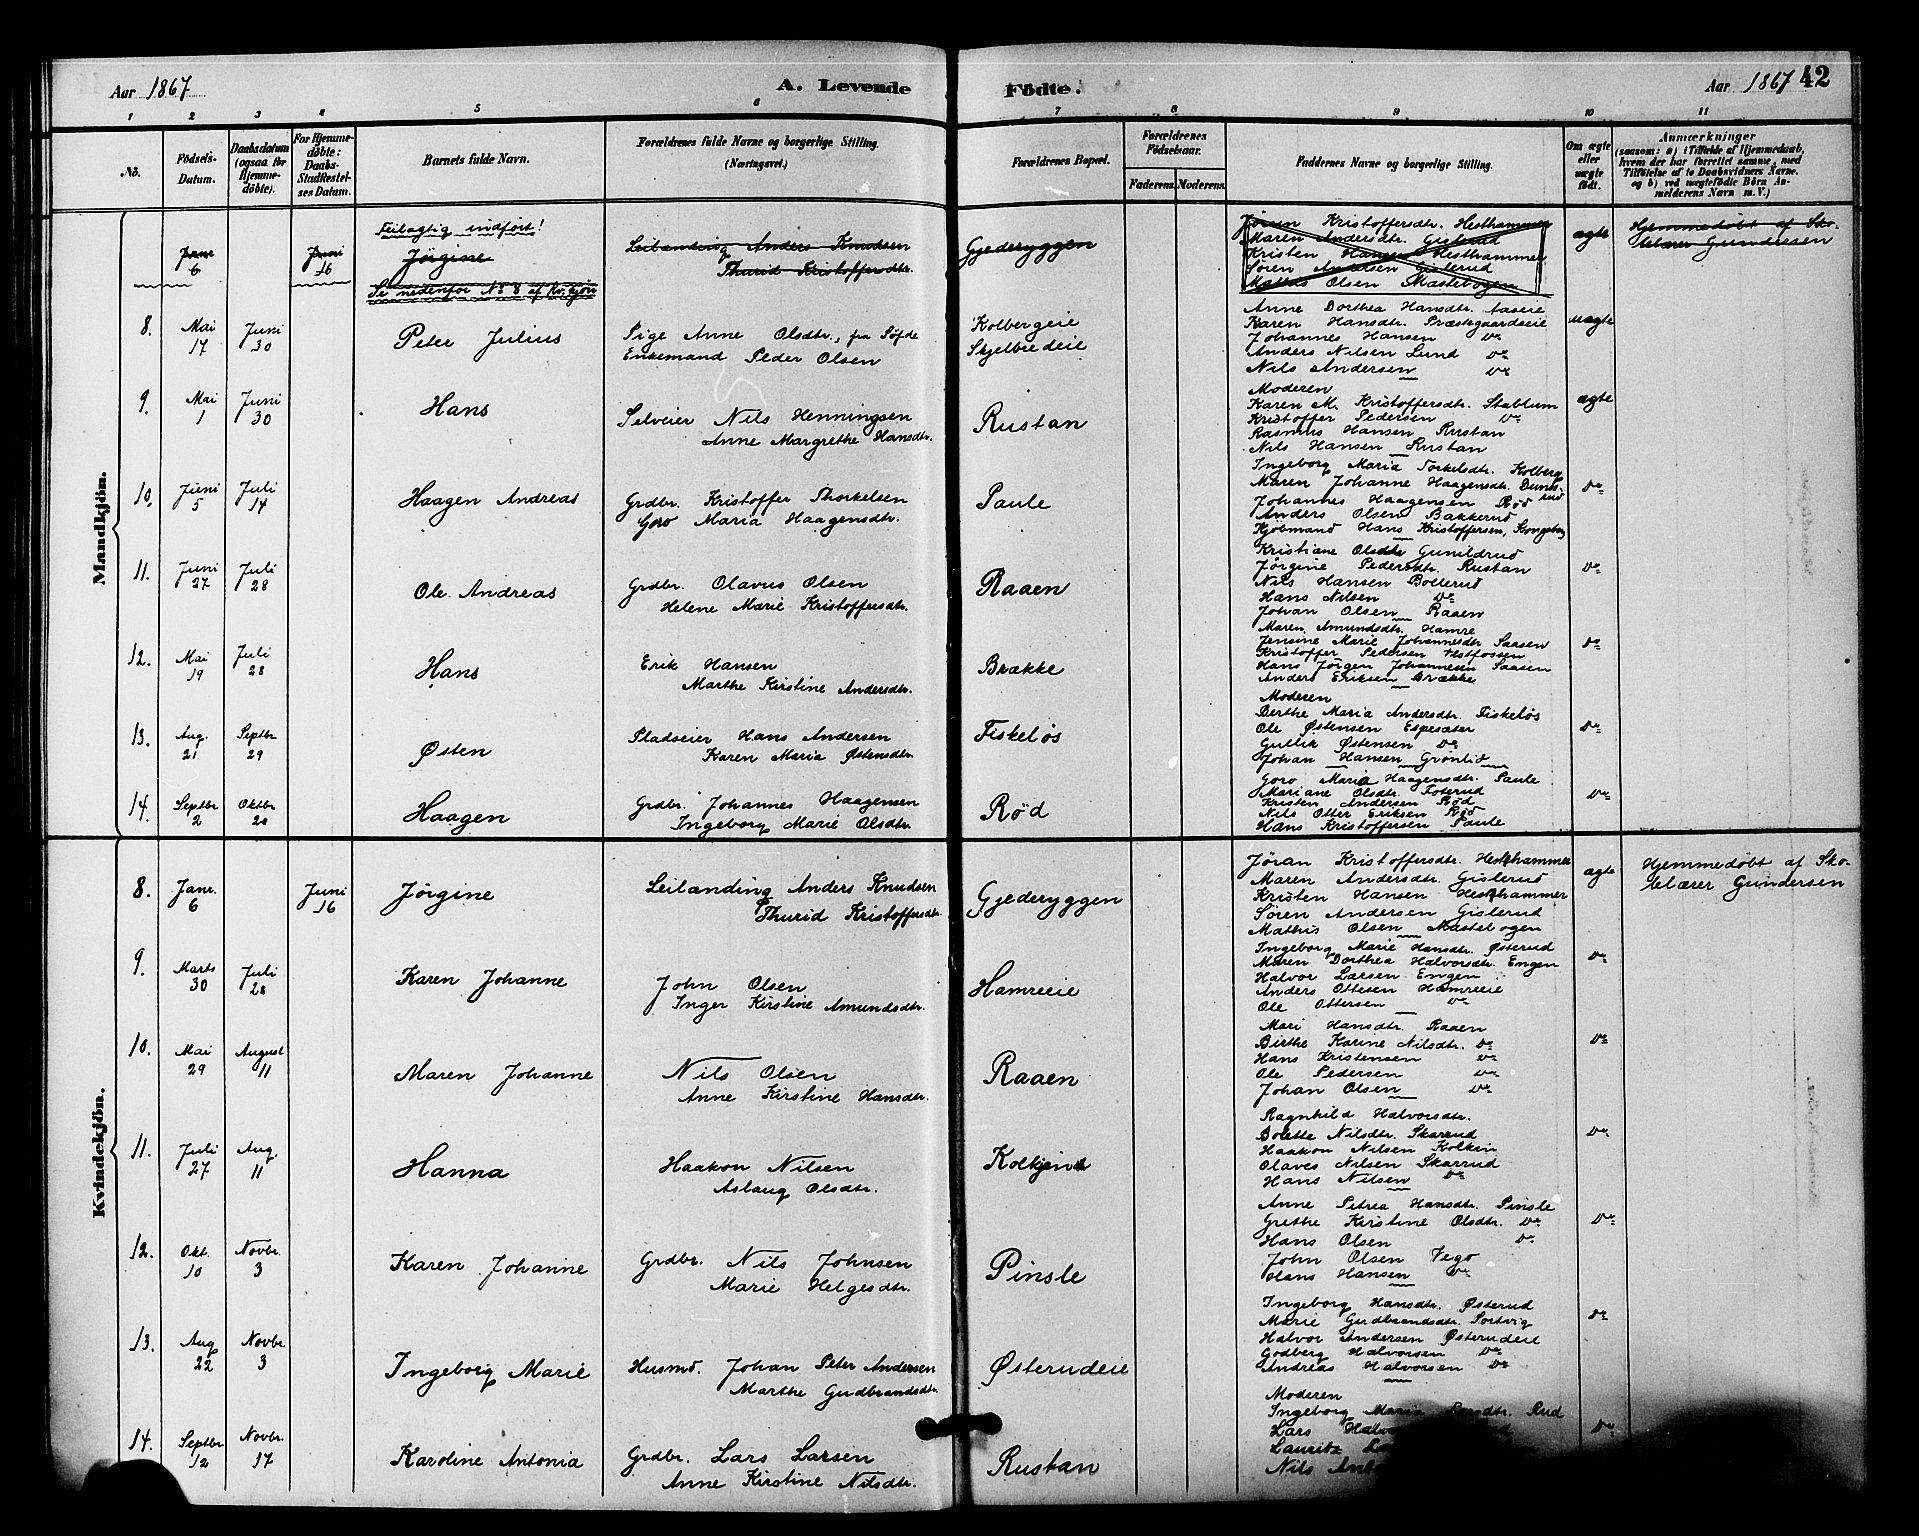 Aar 1867
A. Levende Födte.
Aar 1867 42
1 2 3 4 5 6 7 8 9 10 11
No.
Födsels-Datum.
Daabsdatum (ogsaa for Hjemmedöbte).
For Hjemmedöbte: Daabs-Stadfæstelses Datum.
Barnets fulde Navn.
Forældrenes fulde Navne og borgerlige Stilling. (Næringsvei.)
Forældrenes Bopæl.
Forældrenes Födselsaar.
Faderens. Moderens.
Faddernes Navne og borgerlige Stilling.
Om ægte eller uægte födt.
Anmærkninger
(saasom: a) i Tilfælde af Hjemmedaab, hvem der har forrettet samme, med Tilföielse af to Daabsvidners Navne, og b) ved uægtefödte Börn Anmelderens Navn m. V.)
Mandkjön.
Feilagtig indført!
Janr 6
Juni 16
Jørgine
Se nedenfor No 8 af Kv.kjön
Leilænding Anders Knudsen
Thurid Kristoffersdtr.
Gjederyggen
Jøran Kristoffersdtr. Hesthammer
Maren Andersdtr. Gislerud
Kristen Hansen Hesthammer
Søren Andersen Gislerud
Mathis Olsen Mastebogen
ægte
Hjemmedøbt af Sko-
lelærer Gundersen
8. Mai 17 Juni 30
Peter Julius
Pige Anne Olsdtr., fra Løfde
Enkemand Peder Olsen
Kolbergeie
Skjelbredeie
Anne Dorthea Hansdtr. Aaseie
Karen Hansdtr. Præstegaardseie
Johannes Hansen Do
Anders Nilsen Lund Do
Nils Andersen Do
uægte
9. Mai 1 Juni 30
Hans
Selveier Nils Henningsen
Anne Margrethe Hansdtr.
Rustan
Moderen
Karen M. Kristoffersdtr. Stablum
Kristoffer Pedersen Do
Rasmus Hansen Rustan
Nils Hansen Rustan
ægte
10. Juni 5 Juli 14
Haagen Andreas
Grdbr. Kristoffer Thorkelsen
Goro Maria Haagensdtr.
Paule
Ingeborg Maria Torkelsdtr. Kolberg
Maren Johanne Haagensdtr. Dunserud
Johannes Haagensen Rød
Anders Olsen Bakkerud
Kjöbmand Hans Kristoffersen, Kongsberg
Do
11. Juni 27 Juli 28
Ole Andreas
Grdbr. Olavus Olsen
Helene Marie Kristoffersdtr.
Raaen
Kristiane Olsdtr Gunildrud
Jørgine Pedersdtr. Rustan
Nils Hansen Bollerud
Hans Nilsen Do
Johan Olsen Raaen
Do
12. Mai 19 Juli 28
Hans
Erik Hansen
Marthe Kirstine Andersdtr.
Brække
Maren Amundsdtr. Hamre
Jensine Marie Johannesdtr Saasen
Kristoffer Pedersen Vestfossen
Hans Jörgen Johannesen Saasen
Anders Eriksen Brække
Do
13. Aug. 21 Septbr 29
Østen
Pladseier Hans Andersen
Karen Maria Østensdtr.
Fiskeløs
Moderen
Berthe Maria Andersdtr. Fiskeløs
Ole Østensen Espesæter
Gullik Østensen Do
Johan Hansen Grönlid
Do
14. Septbr 2 Oktbr 20
Haagen
Grdbr. Johannes Haagensen
Ingeborg Marie Olsdtr.
Rød
Goro Maria Haagensdtr. Paule
Mariane Olsdtr. Foterud
Kristen Andersen Rød
Nils Otter Eriksen Rød
Hans Kristoffersen Paule
Do
Kvindekjön.
8. Janr. 6 Juni 16
Jørgine
Leilænding Anders Knudsen
Thurid Kristoffersdtr
Gjederyggen
Jøran Kristoffersdtr. Hesthammer
Maren Andersdtr. Gislerud
Kristen Hansen Hesthammer
Søren Andersen Gislerud
Mathis Olsen Mastebogen
ægte
Hjemmedøbt af Sko-
lelærer Gundersen
9. Marts 30 Juli 28
Karen Johanne
John Olsen
Inger Kirstine Amundsdtr.
Hamreeie
Ingeborg Marie Hansdtr. Østerud
Maren Dorthea Halvorsdtr. Engen
Halvor Larsen Engen
Anders Ottesen Hamreeie
Ole Ottersen Do
Do
10. Mai 29 August 11
Maren Johanne
Nils Olsen
Anne Kirstine Hansdtr.
Raaen
Mari Hansdtr. Raaen
Birthe Karine Nilsdtr. Do
Hans Kristensen Do
Ole Pedersen Do
Johan Olsen Do
Do
11. Juli 27 Aug. 11
Hanna
Haakon Nilsen
Aslaug Olsdtr.
Kolkjen
Ragnhild Halvorsdtr.
Bolette Nilsdtr. Skarrud
Haakon Nilsen Kolkin
Olaves Nilsen Skarrud
Hans Nilsen Do
Do
12. Okt. 10 Novbr. 3
Karen Johanne
Grdbr. Nils Johnsen
Marie Helgesdtr.
Pinsle
Anne Petrea Hansdtr. Pinsle
Grethe Kirstine Olsdtr. Do
Hans Olsen Do
John Olsen Vego
Hans Hansen Do
Do
13. Aug 22 Novbr. 3
Ingeborg Marie
Husmd. Johan Peter Andersen
Marthe Gudbrandsdtr.
Østerudeie
Ingeborg Hansdtr. Østerud
Marie Gudbrandsdtr. Sortvig
Halvor Andersen Østerudeie
Godberg Halvorsen Do
Andreas Halvorsen Do
Do
14. Septbr 12 Novbr. 17
Karoline Antonia
Grdbr. Lars Larsen
Anne Kirstine Nilsdtr.
Rustan
Moderen
Ingeborg Maria Rud
Lars
Lauritz
Nils
Do